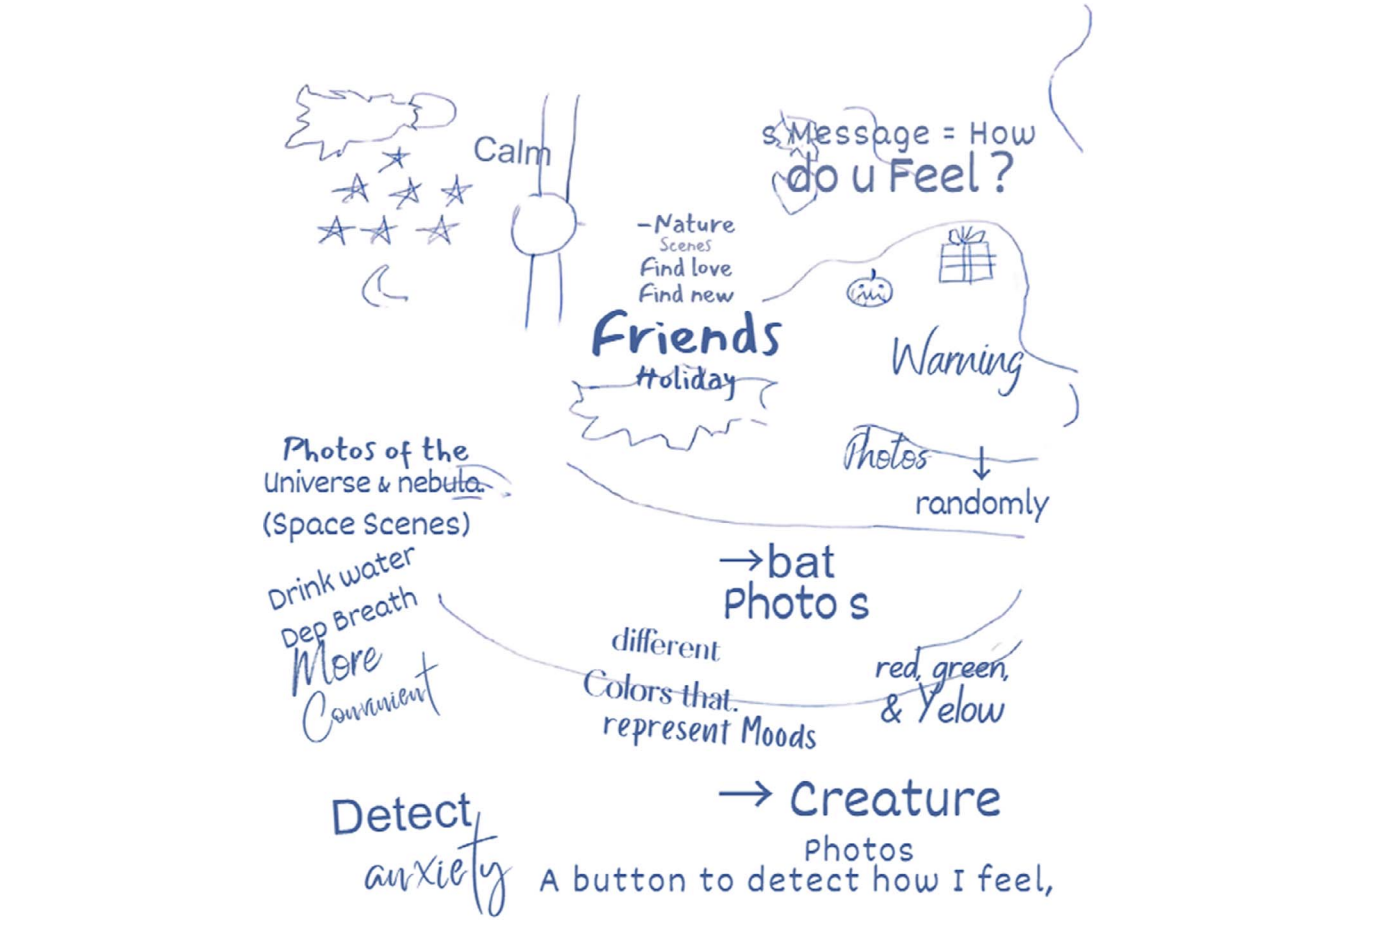 Calm
s Message = How
do u Feel ?
-Nature
Scenes
Find love
Find new
Friends
Holiday
Warning
Photos
randomly
Photos of the
Universe & nebula.
(Space Scenes)
Drink water
Dep Breath
More
Convinient
→bat
Photo s
different
Colors that.
represent Moods
red, green,
& Yelow
→ Creature
Photos
Detect
anxiety
A button to detect how I feel,